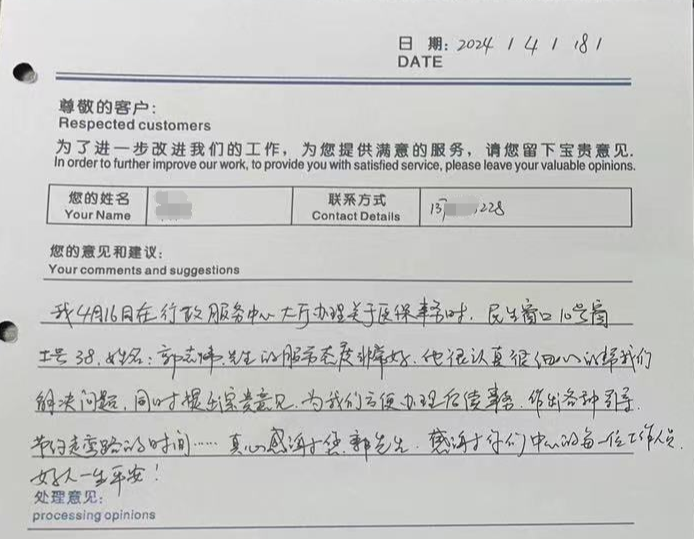 日 期: 2024 / 4 / 18 /
DATE
尊敬的客户:
Respected customers
为了进一步改进我们的工作，为您提供满意的服务，请您留下宝贵意见.
In order to further improve our work, to provide you with satisfied service, please leave your valuable opinions.
您的姓名 联系方式 13 228
Your Name Contact Details
您的意见和建议:
Your comments and suggestions
我4月16日在行政服务中心大厅办理关于医保事务时. 民生窗口10号窗
工号38. 姓名: 郭志伟先生的服务态度非常好. 他很认真很细心的帮我们
解决问题. 同时提出宝贵意见. 为我们方便办理后续事务. 作出各种引导.
节约走弯路的时间…… 真心感谢于您郭先生. 感谢于你们中心的每一位工作人员.
好人一生平安!
处理意见:
processing opinions